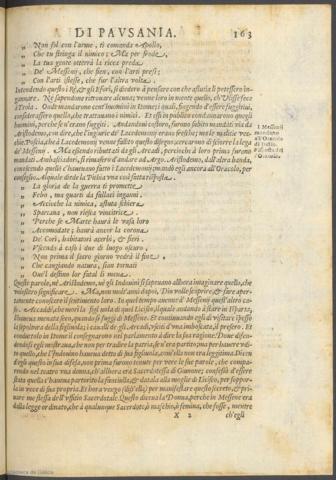 DI PAVSANIA. 163
„ Non sol con l'arme, ti comanda Apollo,
„ Che tu stringa il nimico; Ma per frode,
„ La tua gente otterrà la ricca preda
„ De' Messenij, che sien, con l'arti presi;
„ Con l'arti istesse, che fur l'altra volta.
Intendendo questo i Rè, & gli Efori, si diedero à pensare con che astutia li potessero in-
gannare. Ne sapendone ritrovare alcuna; venne loro in mente quello, ch'Vlisse fece
à Troia. Onde mandarono cent'huomini in
stato assero quello, che trattavano i nimici. Et essi in publico condannarono quegli
huomini, perche se n'erano fuggiti. Andandovi costoro, furono subito mandati via da
Aristodemo, con dire, che l'ingiurie de' Lacedemoni erano fresche; ma le malitie vec-
chie. Poscia, che à Lacedemoni venne fallito questo disegno, cercarono di sciorre la lega
de' Messeni. Ma essendo ributtati da gli Arcadi, perciochè à loro prima furono
mandati Ambasciadori, si rimasero d'andare ad Argo. Aristodemo, dall'altra banda,
conoscendo quello c'haveano fatto i Lacedemoni; mandò egli ancora all'Oracolo, per
consiglio. Al quale diede la Pithia una così fatta risposta.
I Messenij
mandano
all'Oracolo
„ La gloria de la guerra ti promette
„ Febo, ma guarti da fallaci inganni
„ la nimica, astuta schiera
„ Spartana, non riesca vincitrice.
„ Perche se Marte haurà le vasa loro
„ haurà ancor la corona
„ De' Cori, habitatori acerbi, & fieri
„ Vscendo à caso i due di luogo oscuro
„ Non prima il sacro giorno vedrà il fin,
„ Che cangiando natura, sian tornati
„ Quel'dessimo lor fatal di mena.
Queste parole, nè Aristodemo, nè gli Indovini si sapevano allhora imaginare quello, che
volessero significare. Ma, non molt'anni dopoi, Dio volle scoprire, & fare aper-
tamente conoscere il sentimento loro. In quel tempo avenne à' Messenij quest'altro ca-
so. Accadde, che morì la figliuola di quel Licisco, il quale andando à stare in Sparta,
l'haveva menata seco, quando si fuggì di Messene. Et continuando egli di visitare spesso
la sepoltura della figliuola; i cavalli de gli Arcadi, usciti d'una imboscata, il presero. Et
condottolo in Itome il consegnarono nel parlamento à dire la sua ragione. Dove di-
fendendo egli se istesso, che non per tradire la patria, se n'era partito; ma per havere vdi-
to quello, che l'Indovino haveva detto di sua figliuola, con ella non era legitima. Dicen-
do egli queste in sua difesa, non prima furono tenute per vere le sue parole, che compa-
rendo nel teatro vna donna, ch'allhora era Sacerdotessa di Giunone; confessò d'essere
stata quella c'haveva partorita la fanciulla, & datala alla moglie di Licisco, per soppor-
la in vece di sua propria. Et hora vengo (diss'ella) per manifestare questo secreto, & pri-
varme me stessa dell'vfficio Sacerdotale. Questo diceva la Donna, perche in Messene era
dalla legge ordinato, che à qualunque Sacerdote, ò maschio, ò femina, che fosse, mentre
X 2 ch'egli